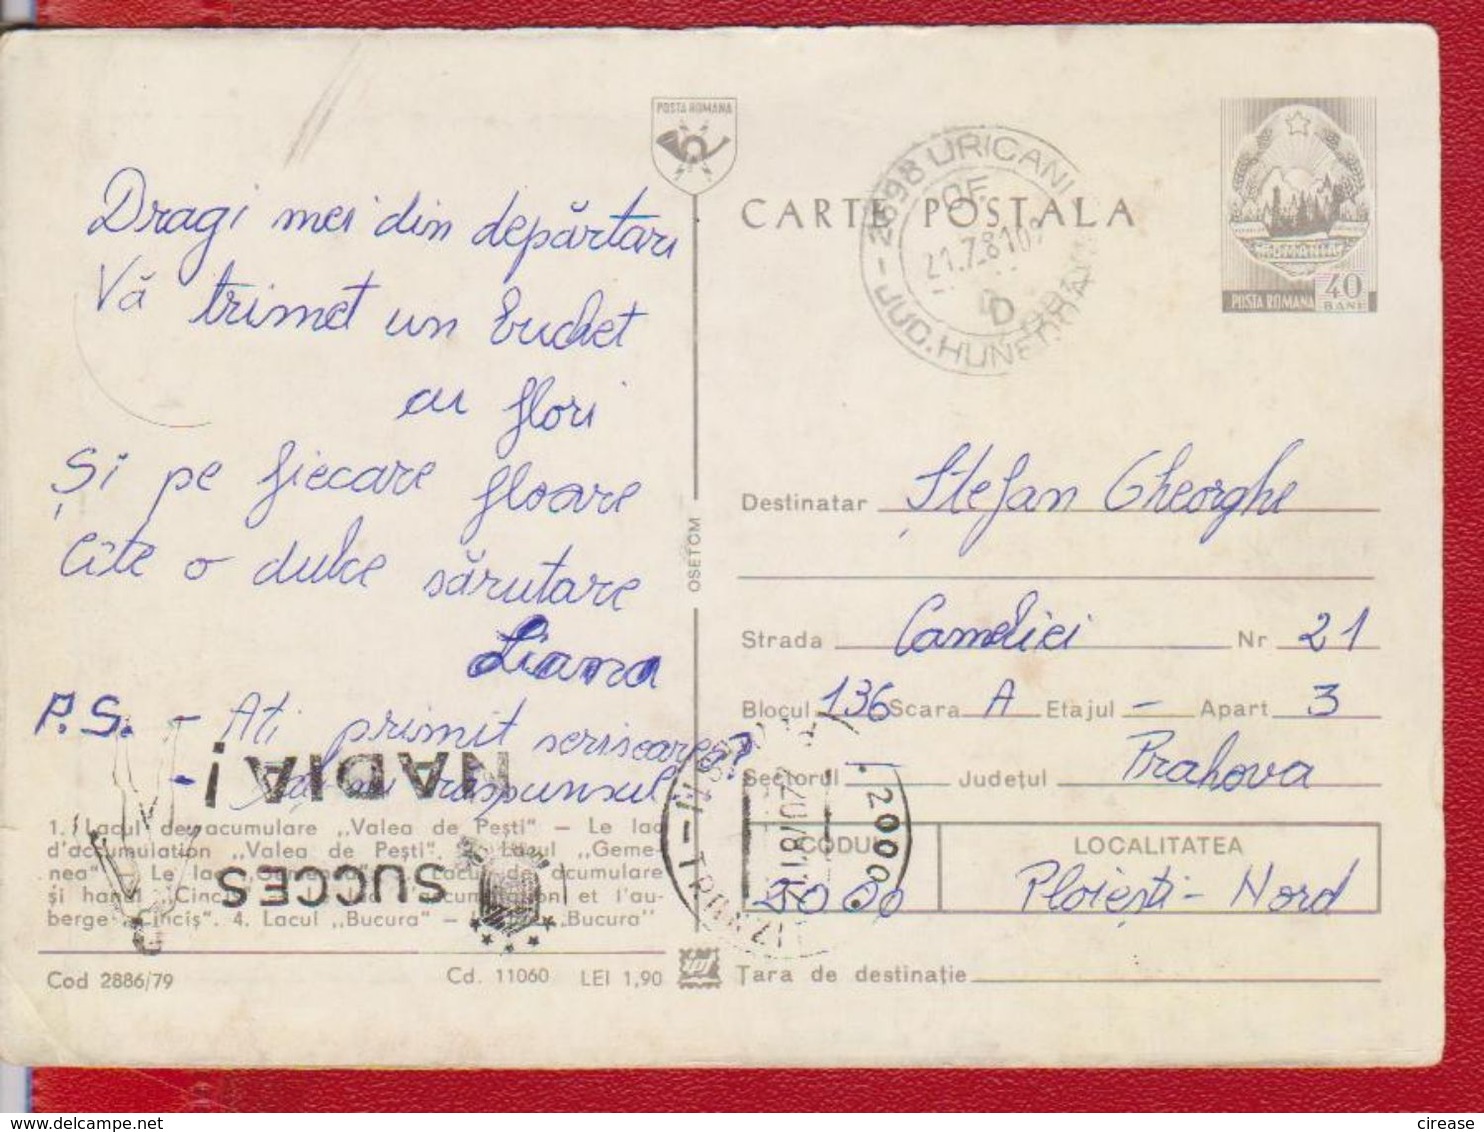 Dragi mei din depărtări
Vă trimet un buchet
cu flori
Și pe fiecare floare
Cîte o dulce sărutare
Liana
P.S. - Ati primit scrisoarea?
răspunsul
SUCCES
NADIA!
1. Lacul de acumulare „Valea de Pești" — Le lac
d'accumulation „Valea de Pești". 2. Lacul „Geme-
nea" — Le lac „Gemenea". 3. Lacul de acumulare
și hanul „Cinciș" — Le lac d'accumulation et l'au-
berge „Cinciș". 4. Lacul „Bucura" — Le lac „Bucura"
Cod 2886/79
Cd. 11060 LEI 1,90
OSETOM
POSTA ROMANA
CARTE POSTALA
2698 URICANI
OF.
21.7.81
D
JUD. HUNEDOARA
POSTA ROMANA 40
BANI
Destinatar Ștefan Gheorghe
Strada Cameliei Nr 21
Blocul 136 Scara A Etajul - Apart 3
Sectorul - Județul Prahova
CODUL LOCALITATEA
2000 Ploiești-Nord
2000
TRANZIT
Țara de destinație
cirease